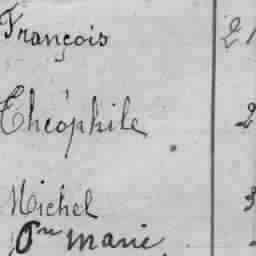 François 21
Théophile 2
Michel 3
marie